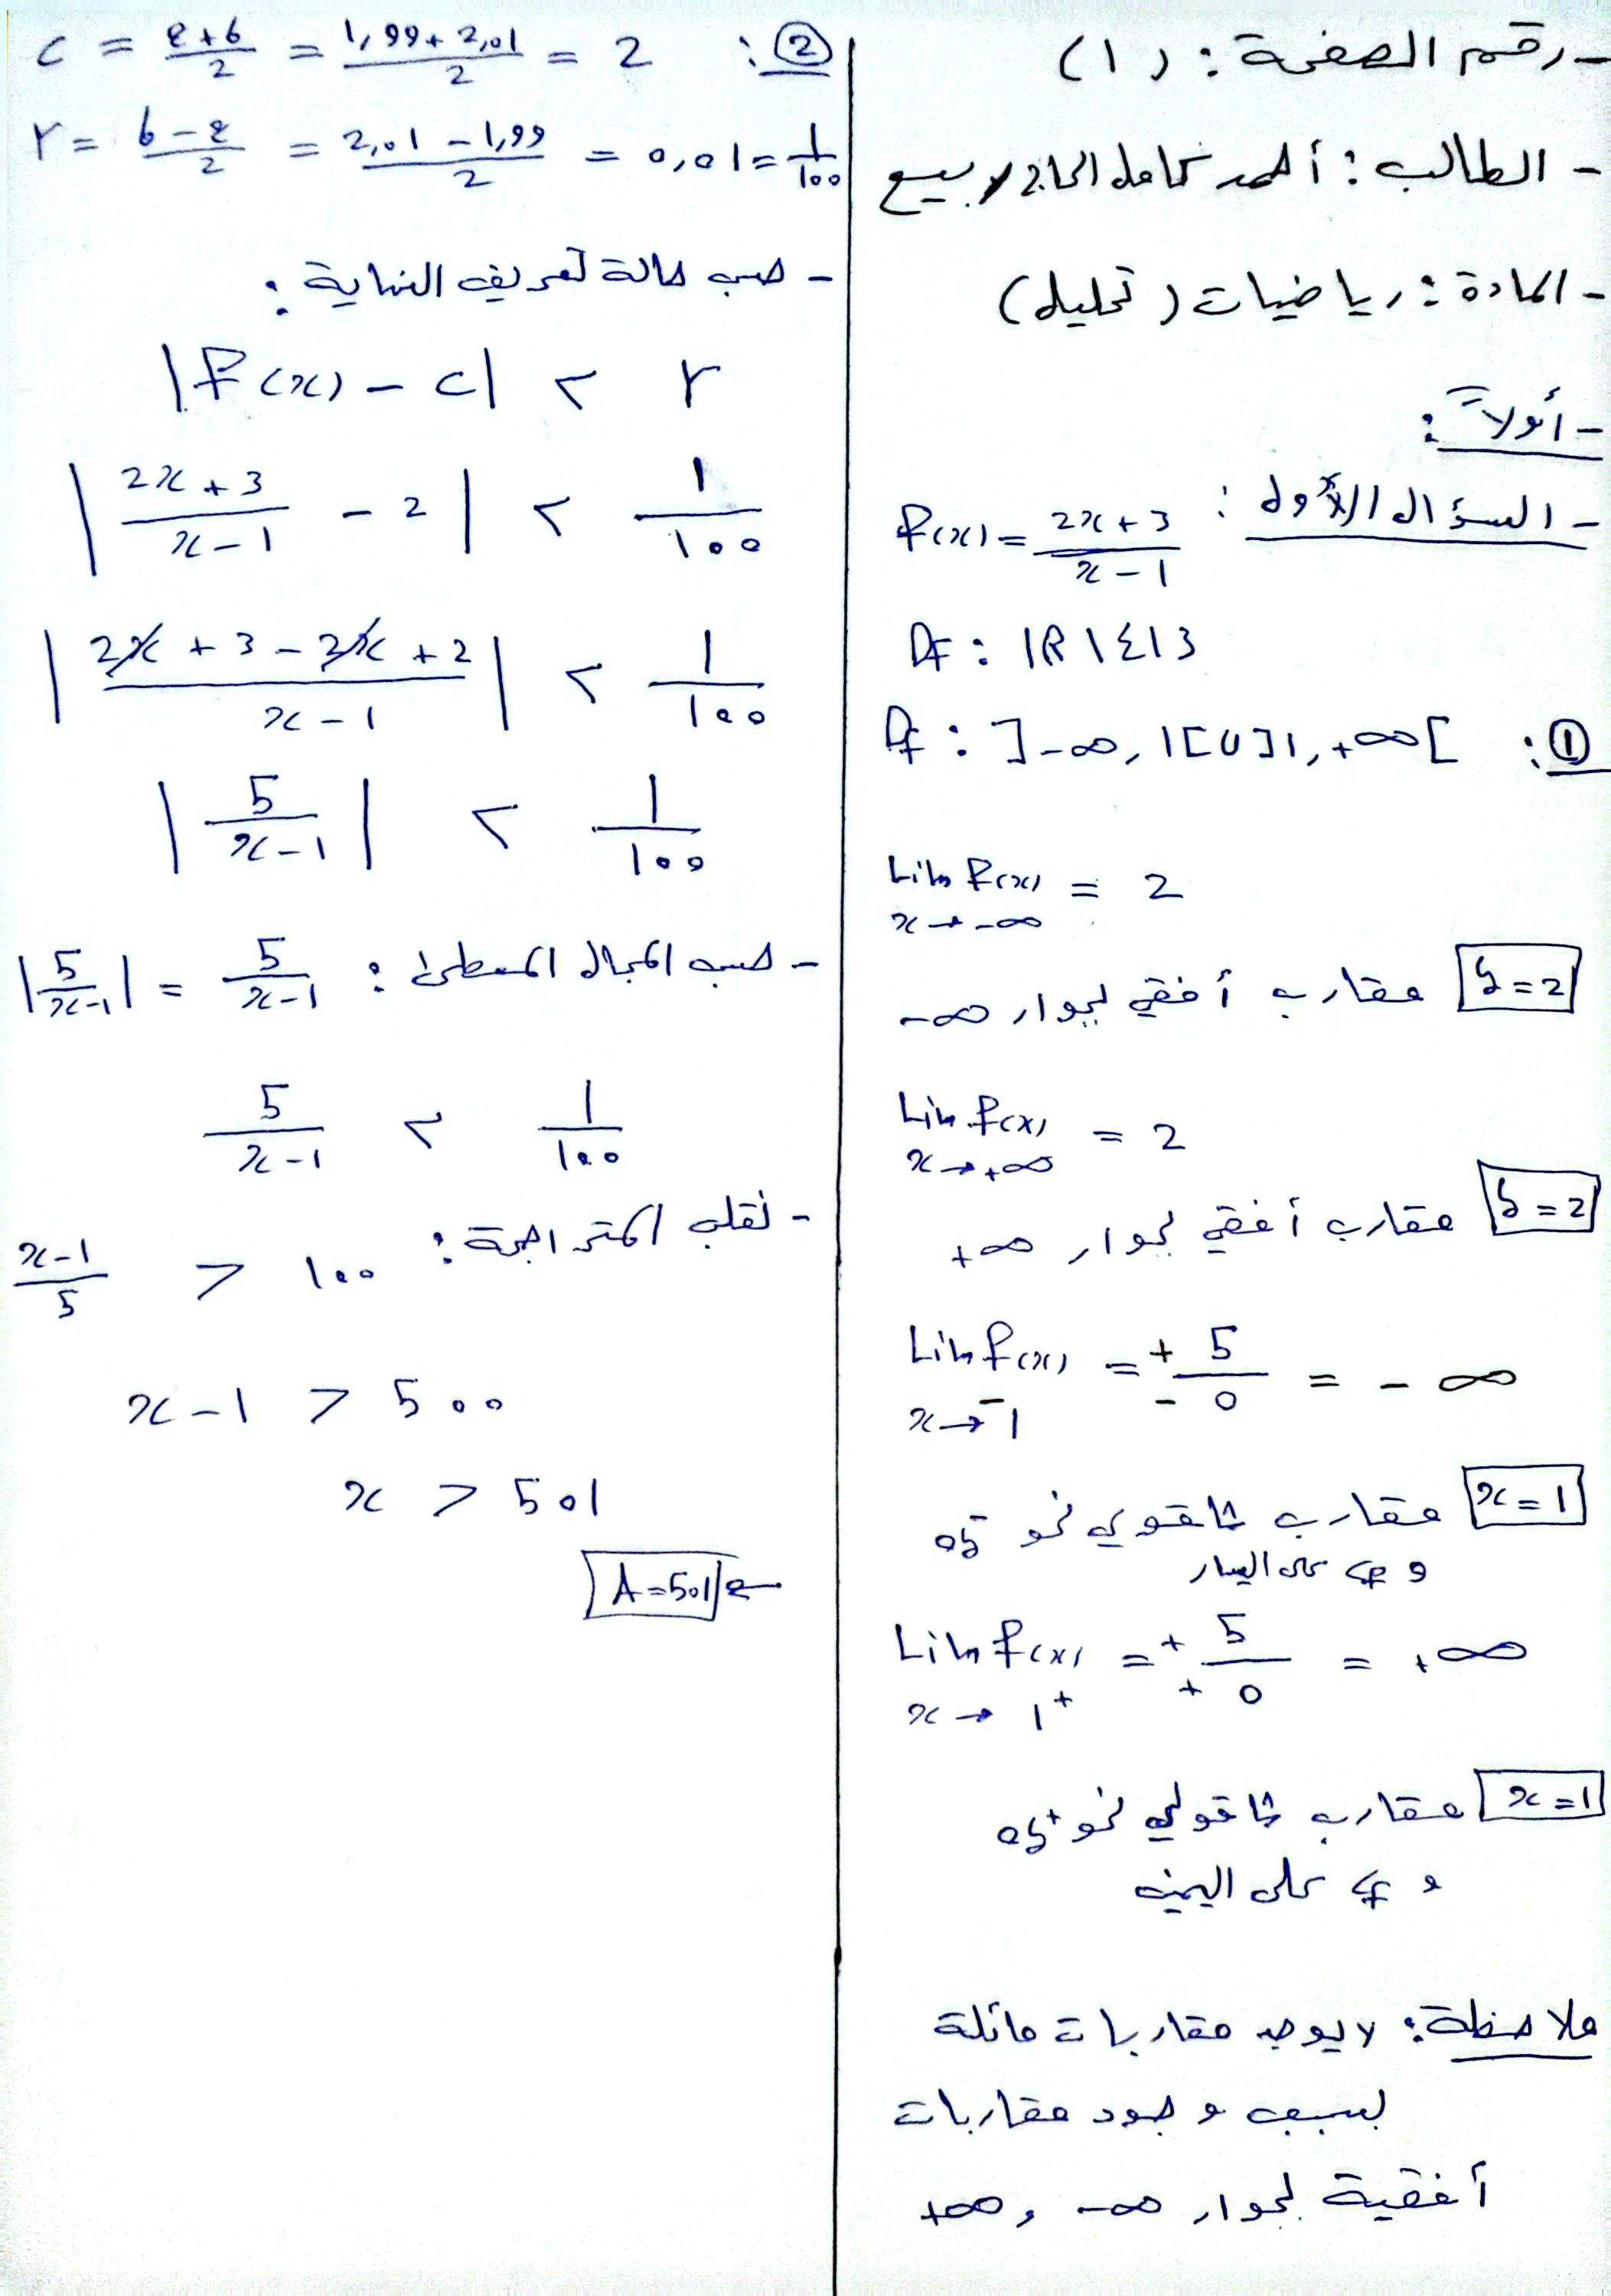 - رقم الصفحة : (1)
- الطالب : أحمد كامل الحاج ربيع
- المادة : رياضيات (تحليل)
- أولاً :
- السؤال الأول : f(x) = (2x+3)/(x-1)
Df : IR \ {1}
① : Df : ]-∞, 1[ U ]1, +∞[
Lim f(x) = 2
x → -∞
y=2 مقارب أفقي بجوار -∞
Lim f(x) = 2
x → +∞
y=2 مقارب أفقي بجوار +∞
Lim f(x) = +5/-0 = -∞
x → -1
x=1 مقارب شاقولي نحو
و على اليسار
Lim f(x) = +5/+0 = +∞
x → 1+
x=1 مقارب شاقولي نحو
و على اليمين
ملاحظة : لا يوجد مقاربات مائلة
بسبب وجود مقاربات
أفقية بجوار -∞ و +∞
② : c = (a+b)/2 = (1,99 + 2,01)/2 = 2
r = (b-a)/2 = (2,01 - 1,99)/2 = 0,01 = 1/100
- حسب حالة تعريف النهاية :
|f(x) - c| < r
|(2x+3)/(x-1) - 2| < 1/100
|(2x + 3 - 2x + 2)/(x-1)| < 1/100
|5/(x-1)| < 1/100
- حسب المجال المعطى : |5/(x-1)| = 5/(x-1)
5/(x-1) < 1/100
- نقلب المتراجحة : (x-1)/5 > 100
x - 1 > 500
x > 501
A = 501